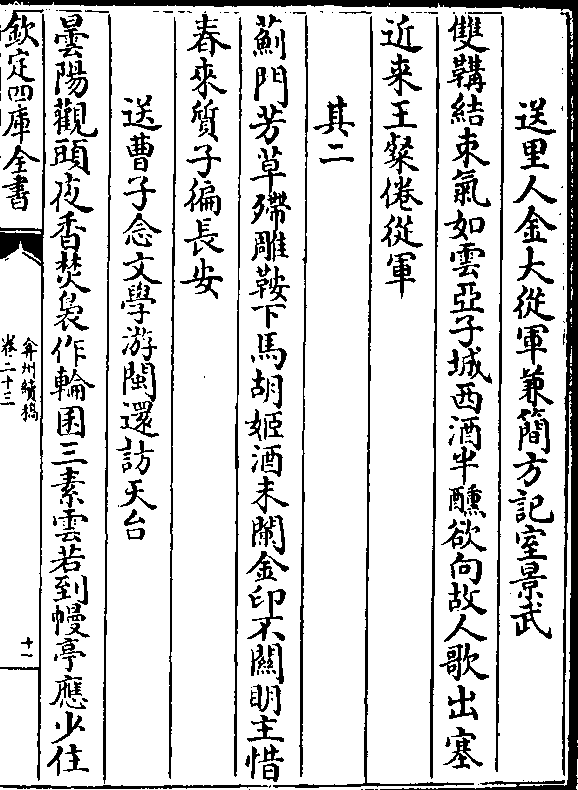 送里人金大從軍兼簡方記室景武
雙鞲結束氣如雲亞子城西酒半醺欲向故人歌出塞
近来王粲倦從軍
其二
薊門芳草殢雕鞍下馬胡姬酒未闌金印不關明主惜
春來質子徧長安
送曹子念文學游閩還訪天台
曇陽觀頭夜香焚裊作輪囷三素雲若到幔亭應少住
欽定四庫全書
弇州續稿
卷二十三
十一